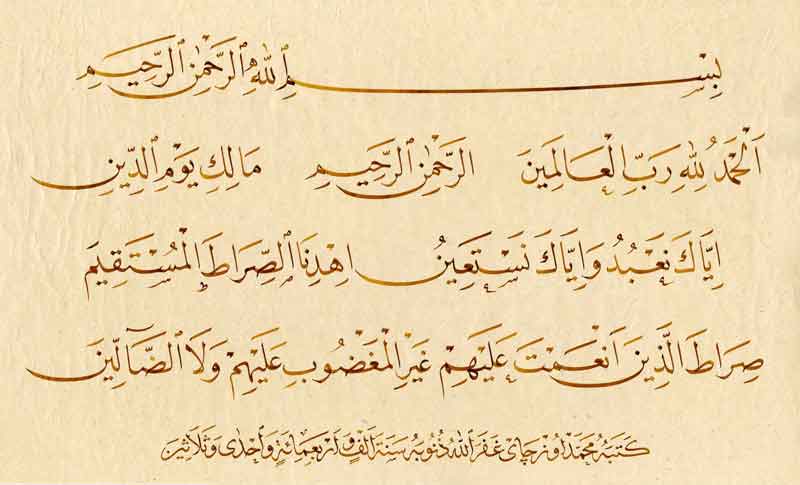 بِسْمِ ٱللّٰهِ ٱلرَّحْمٰنِ ٱلرَّحِيمِ
اَلْحَمْدُ لِلّٰهِ رَبِّ الْعَالَمِينَ الرَّحْمٰنِ ٱلرَّحِيمِ مَالِكِ يَوْمِ ٱلدِّينِ
اِيَّاكَ نَعْبُدُ وَاِيَّاكَ نَسْتَعِينُ اِهْدِنَا ٱلصِّرَاطَ الْمُسْتَقِيمَ
صِرَاطَ الَّذِينَ اَنْعَمْتَ عَلَيْهِمْ غَيْرِ الْمَغْضُوبِ عَلَيْهِمْ وَلَا ٱلضَّٓالِّينَ
كَتَبَهُ مُحَمَّد اوزچاى غَفَرَ اللّٰهُ ذُنُوبَهُ سَنَةَ اَلْفٍ وَاَرْبَعِمِائَةٍ وَاِحْدٰى وَثَلَاثِينَ